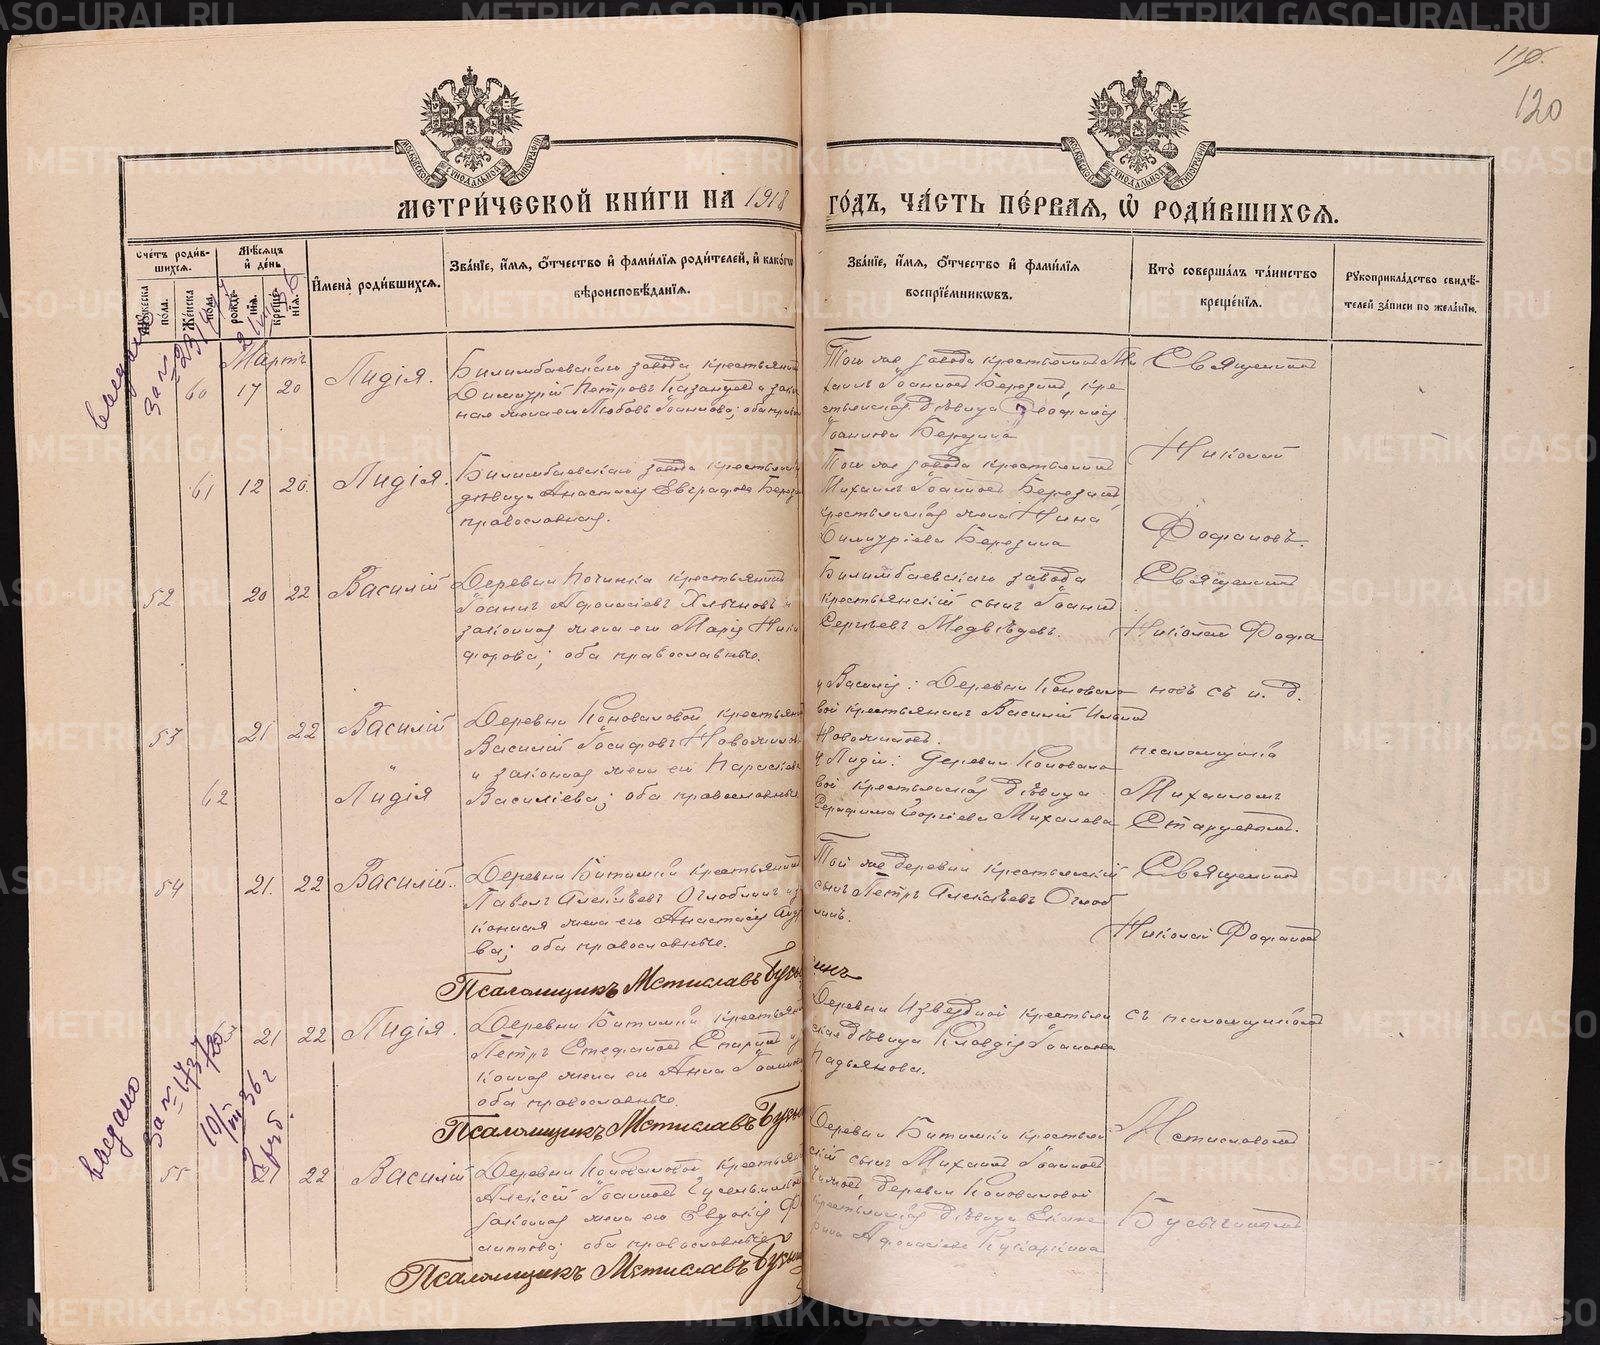 METRIKI.GASO-URAL.RU
119.
120
МЕТРИ́ЧЕСКОЙ КНИ́ГИ НА 1918 ГО́ДЪ, ЧА́СТЬ ПЕ́РВАЯ, Ѽ РОДИ́ВШИХСЯ.
Сче́тъ роди́вшихся.
Мꙋ́жеска пола.
Же́нска пола.
Мѣ́сяцъ и҆ де́нь
рожде́нїя.
креще́нїя.
И҆мена̀ роди́вшихся.
Зва́нїе, и҆́мя, ѻ҆́тчество и҆ фами́лїя роди́телей, и҆ како́гѡ вѣроисповѣ́данїя.
Зва́нїе, и҆́мя, ѻ҆́тчество и҆ фами́лїя воспрїе́мникѡвъ.
Кто̀ соверша́лъ та́инство креще́нїя.
Рꙋкоприкла́дство свидѣ́телей за́писи по жела́нїю.
Мартъ
60 17 20 Лидія.
Билимбаевскаго завода крестьянинъ
Димитрій Петровъ Казанцевъ и закон
ная жена его Любовь Іоаннова; оба правосл
Того же завода крестьянинъ Ми
хаилъ Іоанновъ Березинъ, кре
стьянская дѣвица Ѳеофанія
Іоаннова Березина
Священникъ
Николай
Фофановъ.
61 12 20 Лидія.
Билимбаевскаго завода крестьянская
дѣвица Анастасія Евграфова Берез
православная.
Того же завода крестьянинъ
Михаилъ Іоанновъ Березинъ,
крестьянская жена Нина
Димитріева Березина
52 20 22 Василій
Деревни Починка крестьянинъ
Іоаннъ Афонасіевъ Хлыновъ и
законная жена его Марія Ники
форова; оба православные.
Билимбаевскаго завода
крестьянскій сынъ Іоаннъ
Сергѣевъ Медвѣдевъ.
Священникъ
Николай Фофа
новъ съ и. д.
псаломщика
Михаиломъ
53 21 22 Василій
62 Лидія
Деревни Коноваловой крестьянинъ
Василій Іосифовъ Новожиловъ
и законная жена его Параскева
Василіева; оба православные
у Василія: Деревни Конова­ло
вой крестьянинъ Василій
Новожиловъ.
у Лидіи: деревни Коновало
вой крестьянская дѣвица
Серафима Георгіева Михалева
54 21. 22 Василій.
Деревни Битимки крестьянинъ
Павелъ Алексѣевъ Оглоблинъ и за
конная жена его Анастасія
ва; оба православные.
Той же деревни крестьянскій
сынъ Петръ Алексѣевъ Оглоб
линъ.
Священникъ
Николай Фофановъ
съ псаломщикомъ
Мстиславомъ
Бусыгинымъ
Псаломщикъ Мстиславъ Бусыгинъ
21 22 Лидія.
Деревни Битимки крестьянинъ
Петръ Стефановъ и за
конная жена его Анна Іоаннова
оба православные.
Деревни Извездной крестьян
ская дѣвица Клавдія Іоаннова
Псаломщикъ Мстиславъ Бусы
55 21 22 Василій
Деревни Коноваловой крестьянинъ
Алексій Іоанновъ
законная жена его Евдокія Фи
липпова; оба православные
Деревни Битимки крестьян
скій сынъ Михаилъ Іоанновъ
деревни Коноваловой
крестьянская дѣвица Екате
рина Афонасіева Кукаркина
Псаломщикъ Мстиславъ Бусы
выдано
за №